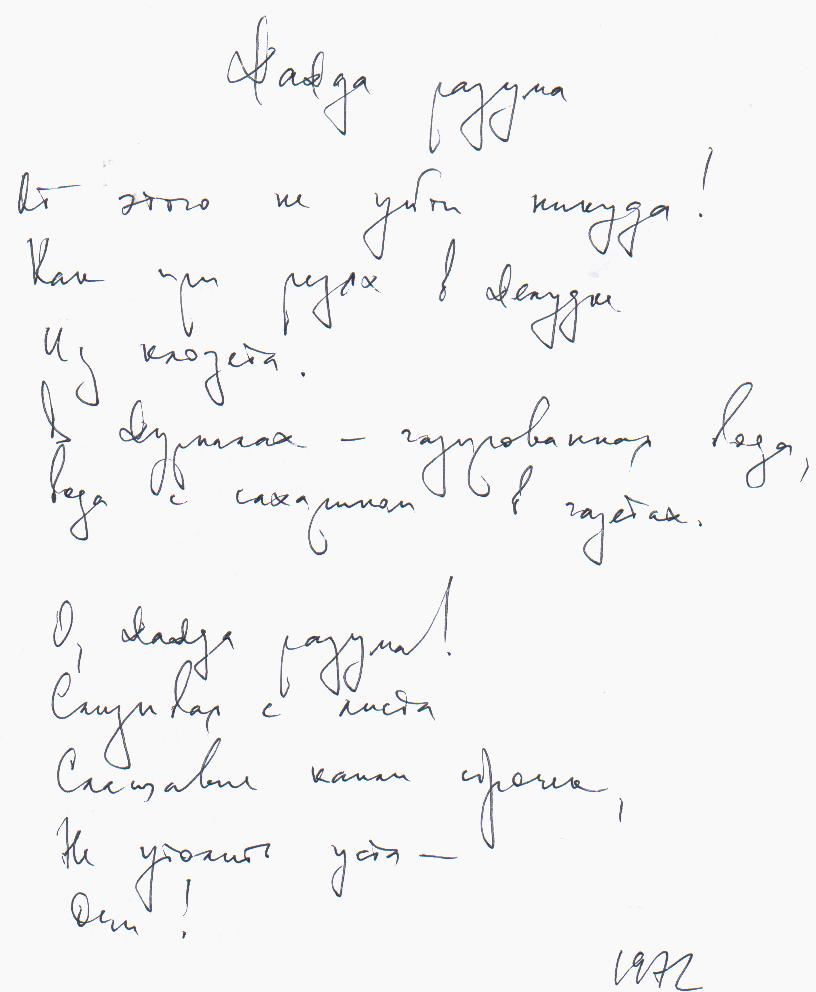 Жажда разума
От этого не уйти никуда!
Как при резях в желудке
Из клозета.
В журналах – газированная вода,
Вода с сахарином в газетах.
О, жажда разума!
Слизывая с листа
Слащавые капли строчек,
Не утолить уста –
Очи!
1972